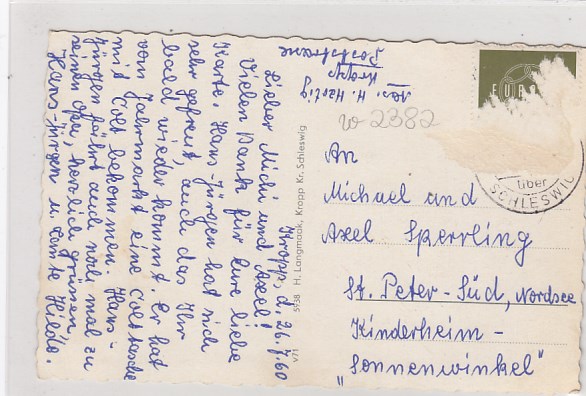 Kropp, d. 26.7.60
Lieber Michi und Axel!
Vielen Dank für Eure liebe
Karte. Hans-Jürgen hat sich
sehr gefreut, auch das Ihr
bald wieder kommt. Er hat
vom Jahrmarkt eine Colttasche
mit Colt bekommen. Hans-
Jürgen fährt auch noch mal zu
seinen Opa, herzlich grüßen,
Hans-Jürgen u. Tante Hilde.
V71 5938 H. Langmaak, Kropp Kr. Schleswig
Abs. H. Hartig
Kropp
Poststrasse
w 2382
EURO
über
SCHLESWIG
An
Michael und
Axel Sperrling
St. Peter-Süd, Nordsee
Kinderheim-
„Sonnenwinkel"